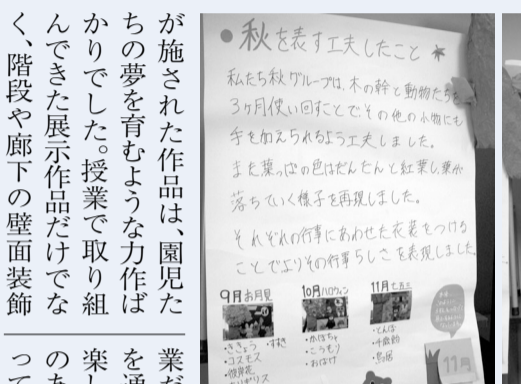 が施された作品は、園児た
ちの夢を育むような力作ば
かりでした。授業で取り組
んできた展示作品だけでな
く、階段や廊下の壁面装飾
秋を表す工夫したこと
私たち秋グループは、木の幹と動物たちを
3ヶ月使い回すことで、その他の小物にも
手を加えられるよう工夫しました。
また葉っぱの色はだんだんと紅葉し、葉が
落ちていく様子を再現しました。
それぞれの行事にあわせた衣装をつける
ことでよりその行事らしさを表現しました。
9月お月見
・ききょう ・すすき
・コスモス
・彼岸花
10月ハロウィン
・かぼちゃ
・こうもり
・おばけ
11月七五三
・とんぼ
・千歳飴
・鳥居
11月
業だ
を通
楽し
のあ
って